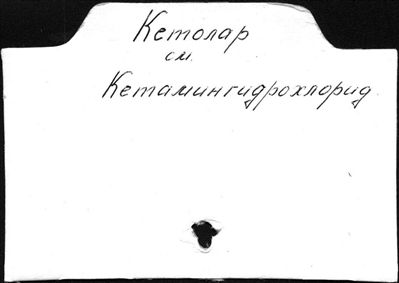 Кетолар
см.
Кетамингидрохлорид